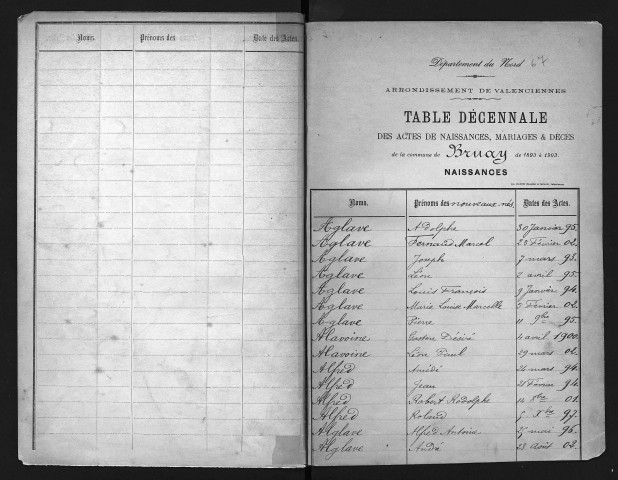 Noms. Prénoms des Date des Actes.
Département du Nord 67
ARRONDISSEMENT DE VALENCIENNES
TABLE DÉCENNALE
DES ACTES DE NAISSANCES, MARIAGES & DÉCÈS
de la commune de Bruay de 1893 à 1903.
NAISSANCES
Noms. Prénoms des nouveaux nés. Dates des Actes.
Aglave Adolphe 30 Janvier 95.
Aglave Fernand Marcel 28 Février 02.
Aglave Joseph 7 mars 98.
Aglave Léon 2 avril 95.
Aglave Louis François 9 Janvier 94.
Aglave Marie Louise Marcelle 3 Février 02.
Aglave Pierre 11 9bre 95.
Alavoine Gaston Désiré 4 avril 1900.
Alavoine Léon Paul 29 mars 02.
Alfred 21 mars 94.
Alfred Jean 21 Février 94.
Alfred Robert Rodolphe 14 Xbre 01.
Alfred Roland 5 Xbre 97.
Alglave Alfred Antoine 25 mai 96.
Alglave André 28 Août 02.